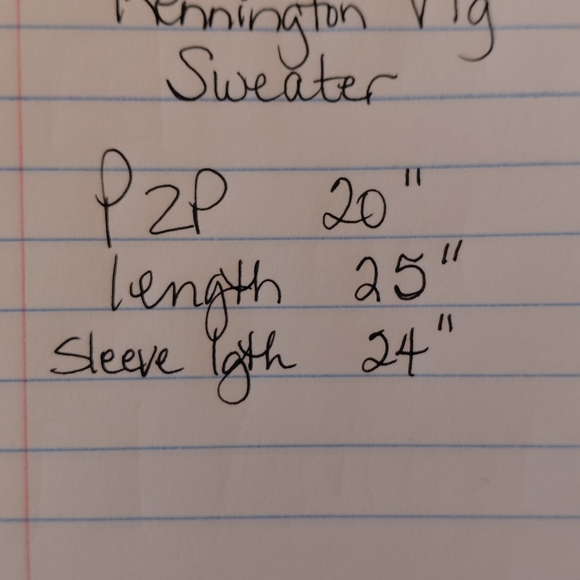 Kennington Vtg
Sweater
P2P 20"
length 25"
Sleeve lgth 24"